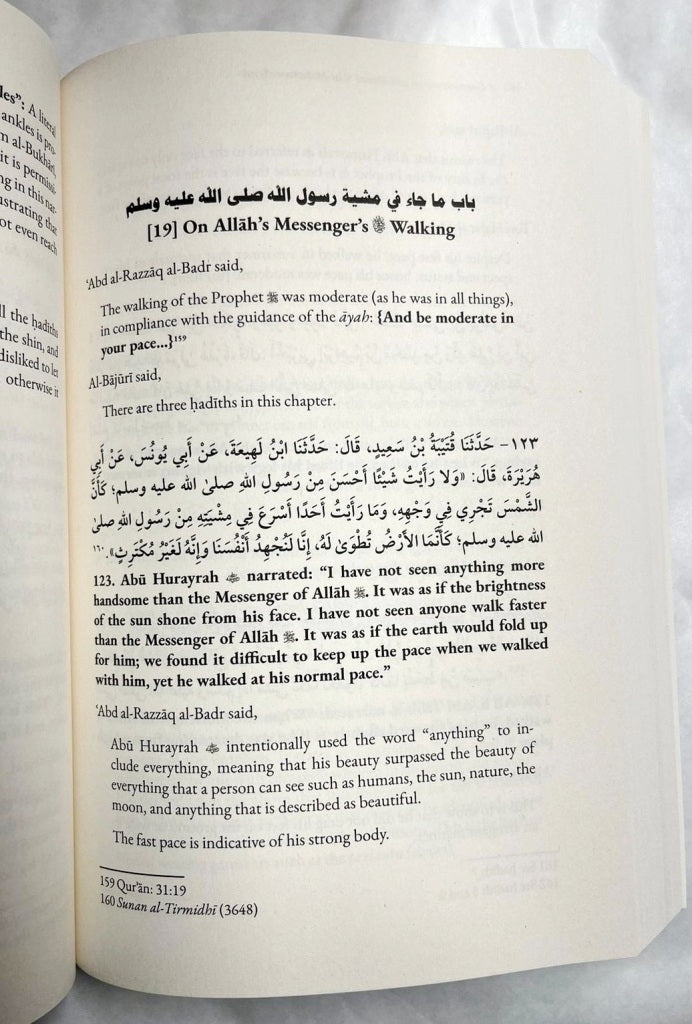 les": A literal
ankles is pro-
m al-Bukhārī,
it is permissi-
ng in this nar-
strating that
ot even reach
ll the ḥadīths
the shin, and
disliked to let
otherwise it
باب ما جاء في مشية رسول الله صلى الله عليه وسلم
[19] On Allāh's Messenger's ﷺ Walking
ʻAbd al-Razzāq al-Badr said,
The walking of the Prophet ﷺ was moderate (as he was in all things),
in compliance with the guidance of the āyah: {And be moderate in
your pace...}¹⁵⁹
Al-Bājūrī said,
There are three ḥadīths in this chapter.
١٢٣- حَدَّثَنَا قُتَيْبَةُ بْنُ سَعِيدٍ، قَالَ: حَدَّثَنَا ابْنُ لَهِيعَةَ، عَنْ أَبِي يُونُسَ، عَنْ أَبِي
هُرَيْرَةَ، قَالَ: «وَلا رَأَيْتُ شَيْئًا أَحْسَنَ مِنْ رَسُولِ اللهِ صلى الله عليه وسلم؛ كَأَنَّ
الشَّمْسَ تَجْرِي فِي وَجْهِهِ، وَمَا رَأَيْتُ أَحَدًا أَسْرَعَ فِي مِشْيَتِهِ مِنْ رَسُولِ اللهِ صلى
الله عليه وسلم؛ كَأَنَّمَا الأَرْضُ تُطْوَى لَهُ، إِنَّا لَنُجْهِدُ أَنْفُسَنَا وَإِنَّهُ لَغَيْرُ مُكْتَرِثٍ».١٦٠
123. Abū Hurayrah ؓ narrated: "I have not seen anything more
handsome than the Messenger of Allāh ﷺ. It was as if the brightness
of the sun shone from his face. I have not seen anyone walk faster
than the Messenger of Allāh ﷺ. It was as if the earth would fold up
for him; we found it difficult to keep up the pace when we walked
with him, yet he walked at his normal pace."
ʻAbd al-Razzāq al-Badr said,
Abū Hurayrah ؓ intentionally used the word "anything" to in-
clude everything, meaning that his beauty surpassed the beauty of
everything that a person can see such as humans, the sun, nature, the
moon, and anything that is described as beautiful.
The fast pace is indicative of his strong body.
159 Qur'ān: 31:19
160 Sunan al-Tirmidhī (3648)